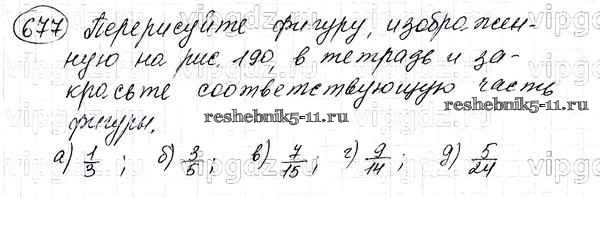 677 Перерисуйте фигуру, изображен-
ную на рис. 190, в тетрадь и за-
красьте соответствующую часть
фигуры.
reshebnik5-11.ru
reshebnik5-11.ru
а) 1/3 ; б) 3/5 ; в) 7/15 ; г) 9/14 ; д) 5/24